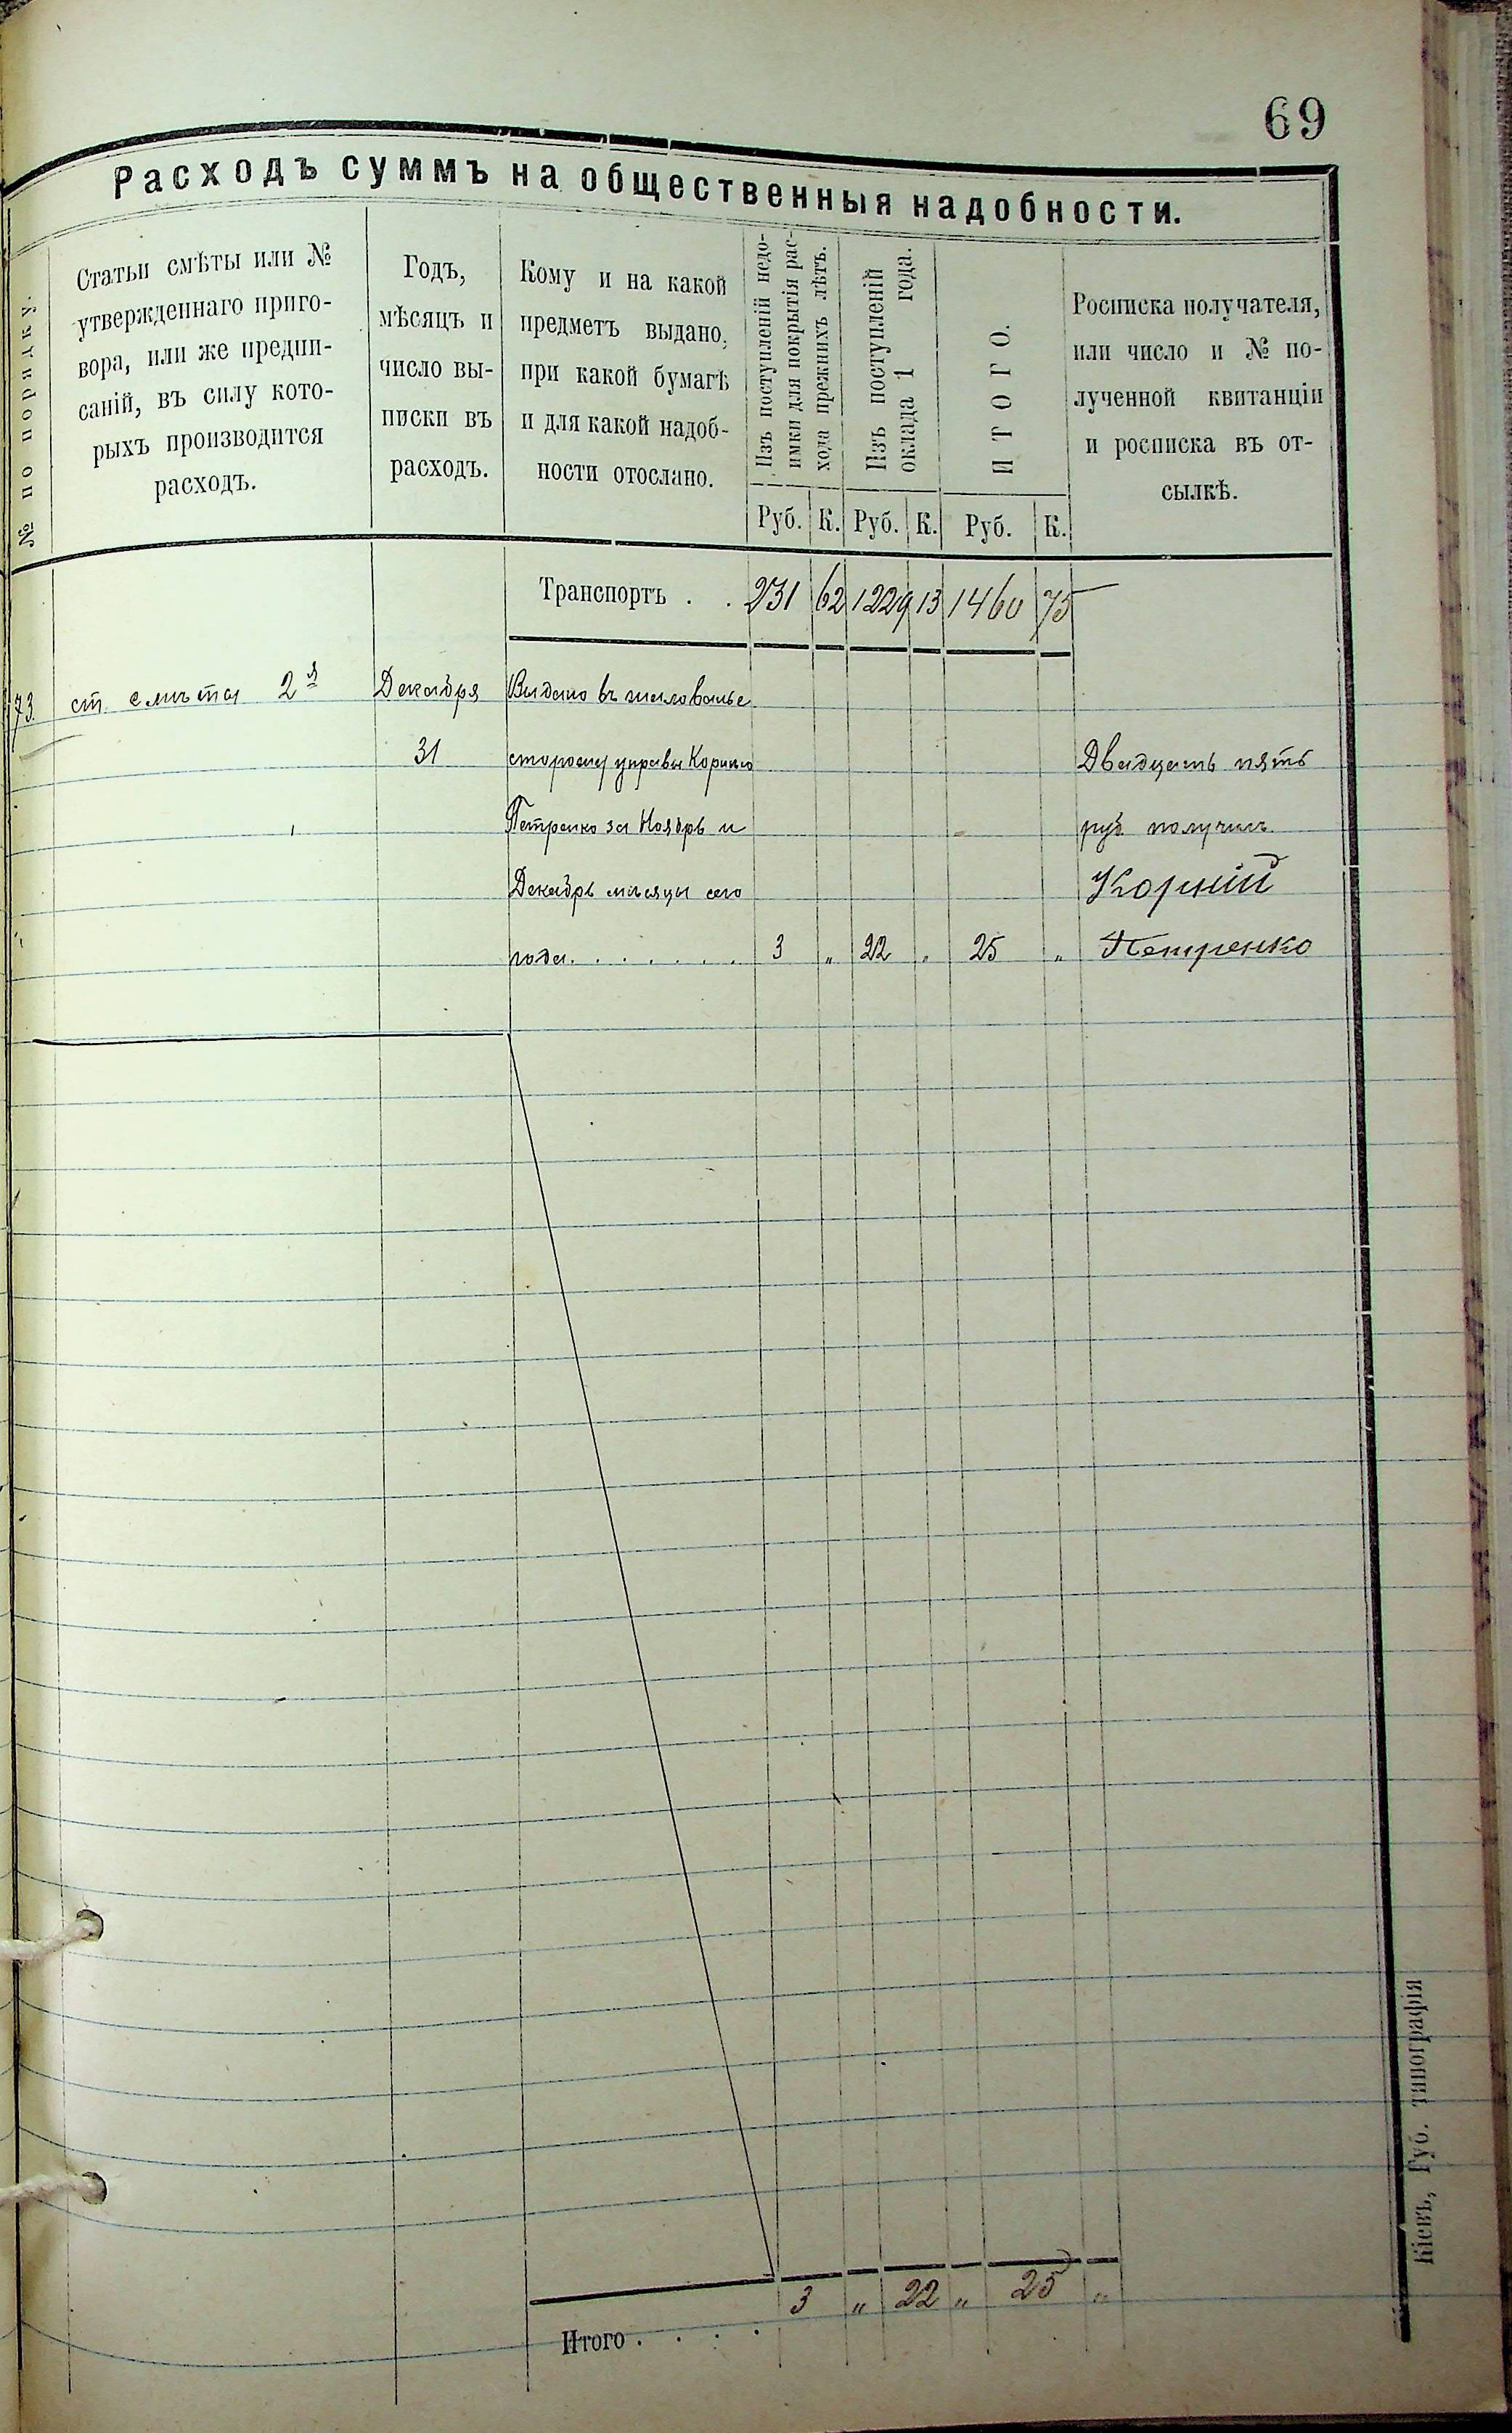 69
Расходъ суммъ на общественныя надобности.
№ по порядку.
Статьи смѣты или №
утвержденнаго приго-
вора, или же предпи-
саній, въ силу кото-
рыхъ производится
расходъ.
Годъ,
мѣсяцъ и
число вы-
писки въ
расходъ.
Кому и на какой
предметъ выдано,
при какой бумагѣ
и для какой надоб-
ности отослано.
Изъ поступленій недо-
имки для покрытія рас-
хода прежнихъ лѣтъ.
Изъ поступленій
оклада 1 года.
ИТОГО.
Росписка получателя,
или число и № по-
лученной квитанціи
и росписка въ от-
сылкѣ.
Руб. К. Руб. К. Руб. К.
Транспортъ . . 231 62 1229 13 1460 75
73. ст. смѣта 2я Декабря Выдано въ жалованье
31 сторожу управы Корнію Двадцать пять
Петренко за Ноябрь и руб. получилъ
Декабрь мѣсяцы сего Корній
года. . . . . . . 3 „ 22 „ 25 „ Петренко
3 „ 22 „ 25 „
Итого . . . .
Кіевъ, Губ. типографія